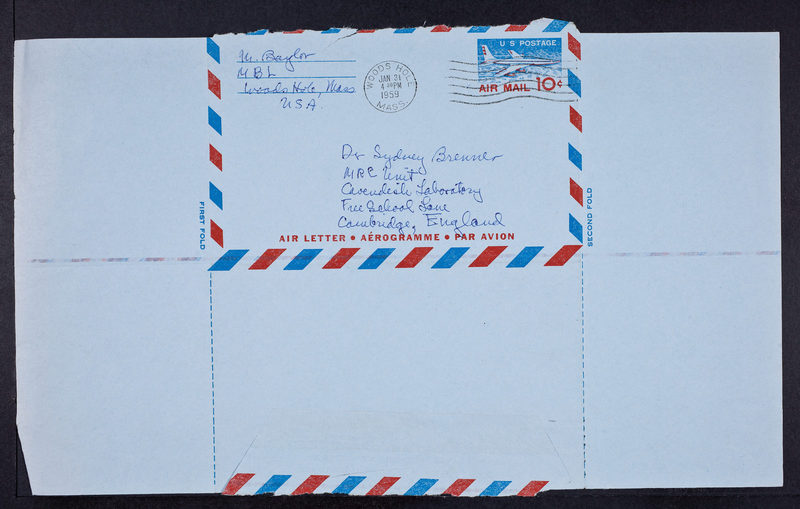 M. Baylor
MBL
Woods Hole, Mass
USA.
WOODS HOLE
JAN 21
4 30 PM
1959
MASS.
U S POSTAGE
AIR MAIL 10¢
Dr Sydney Brenner
MRC Unit
Cavendish Laboratory
Free School Lane
Cambridge, England
FIRST FOLD
SECOND FOLD
AIR LETTER • AÉROGRAMME • PAR AVION